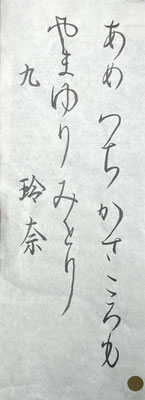 あめ つち かさ ころも
やまゆり みとり
九 玲奈